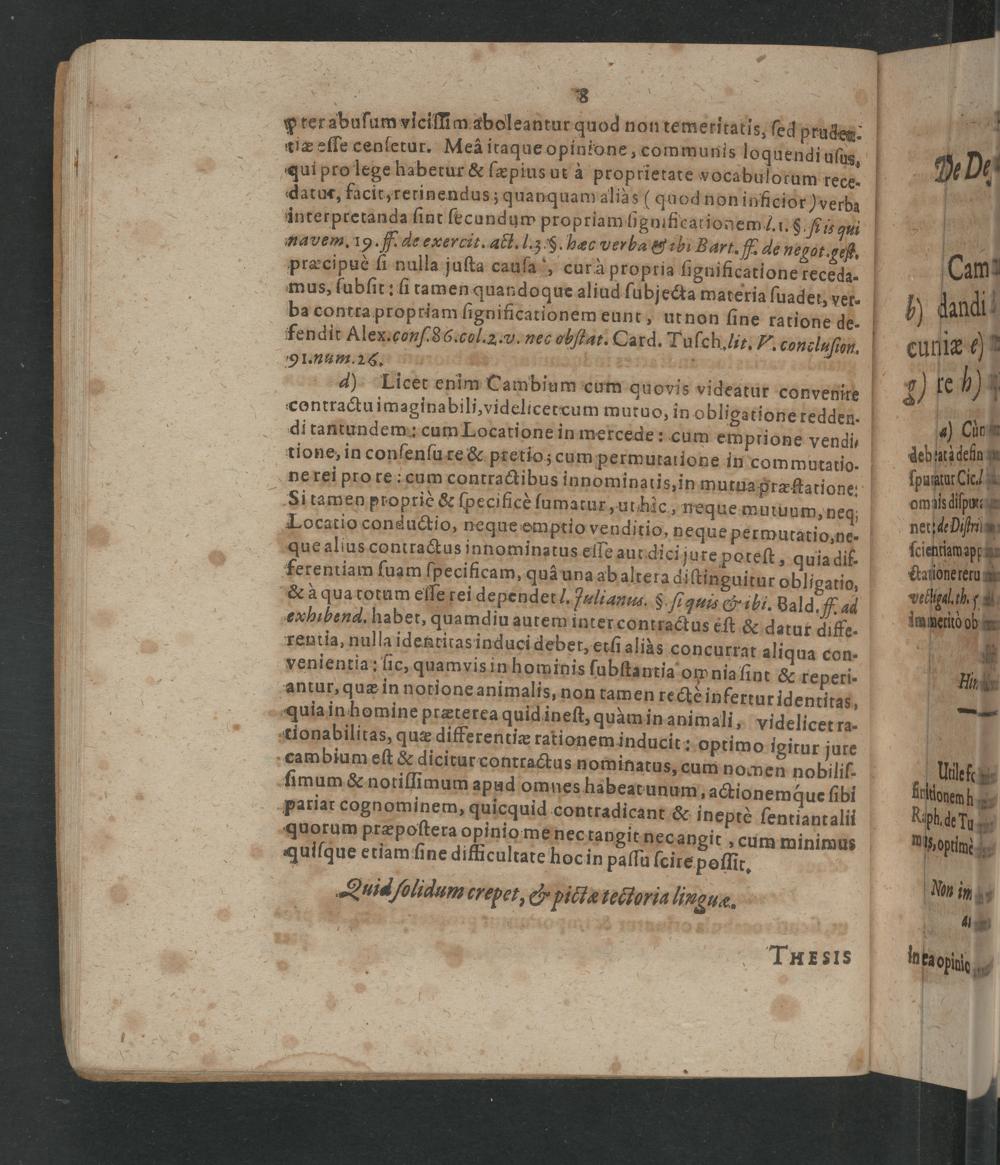 8
pter abusum vicissim aboleantur quod non temeritatis, sed pruden-
tiæ esse censetur. Meâ itaque opinione, communis loquendi usus,
qui pro lege habetur & sæpius ut à proprietate vocabulorum rece-
datur, facit, retinendus; quanquam aliàs (quod non inficior) verba
interpretanda sint secundum propriam significationem l. 1. §. si is qui
navem. 19. ff. de exercit. act. l. 3. §. hæc verba & ibi Bart. ff. de negot. gest.
præcipuè si nulla justa causa, cur à propria significatione receda-
mus, subsit: si tamen quandoque aliud subjecta materia suadet, ver-
ba contra propriam significationem eunt, ut non sine ratione de-
fendit Alex. cons. 86. col. 2. v. nec obstat. Card. Tusch. lit. V. conclusion.
91. num. 26.
d) Licet enim Cambium cum quovis videatur convenire
contractu imaginabili, videlicet cum mutuo, in obligatione redden-
di tantundem: cum Locatione in mercede: cum emptione vendi-
tione, in consensu re & pretio; cum permutatione in commutatio-
ne rei pro re: cum contractibus innominatis, in mutua præstatione:
Si tamen propriè & specificè sumatur, ut hîc, neque mutuum, neq;
Locatio conductio, neque emptio venditio, neque permutatio, ne-
que alius contractus innominatus esse aut dici jure potest, quia dif-
ferentiam suam specificam, quâ una ab altera distinguitur obligatio,
& à qua totum esse rei dependet l. Julianus. §. si quis & ibi. Bald. ff. ad
exhibend. habet, quamdiu autem inter contractus est & datur diffe-
rentia, nulla identitas induci debet, etsi aliàs concurrat aliqua con-
venientia: sic, quamvis in hominis substantia omnia sint & reperi-
antur, quæ in notione animalis, non tamen rectè infertur identitas,
quia in homine præterea quid inest, quàm in animali, videlicet ra-
tionabilitas, quæ differentiæ rationem inducit: optimo igitur jure
cambium est & dicitur contractus nominatus, cum nomen nobilis-
simum & notissimum apud omnes habeat unum, actionemq́ue sibi
pariat cognominem, quicquid contradicant & ineptè sentiant alii
quorum præpostera opinio me nec tangit nec angit, cum minimus
quisque etiam sine difficultate hoc in passu scire possit,
Quid solidum crepet, & pictæ tectoria linguæ.
THESIS
De De
Cam
b) dandi
cuniæ e)
g) re h)
a) Cùm
debeat à defin
sputatur Cic. l
omnis disput
net: de Distri
scientiam app
ctatione reru
vectigal. th. 5
Immeritò ob
Hin
Utile
finitionem h
Raph. de Tu
mus, optimè
Non im
In ea opinio